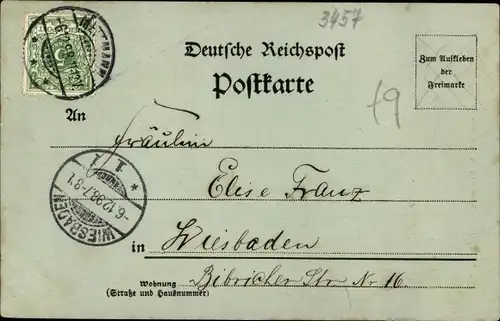 3457
METTMANN
Deutsche Reichspost
Postkarte
Zum Aufkleben
der
Freimarke
An
Fräulein
Elise Franz
in Wiesbaden
Wohnung
(Straße und Hausnummer)
Bibricher Str Nr 16.
WIESBADEN
-6.12.98.7-8V.
* 1 1 *